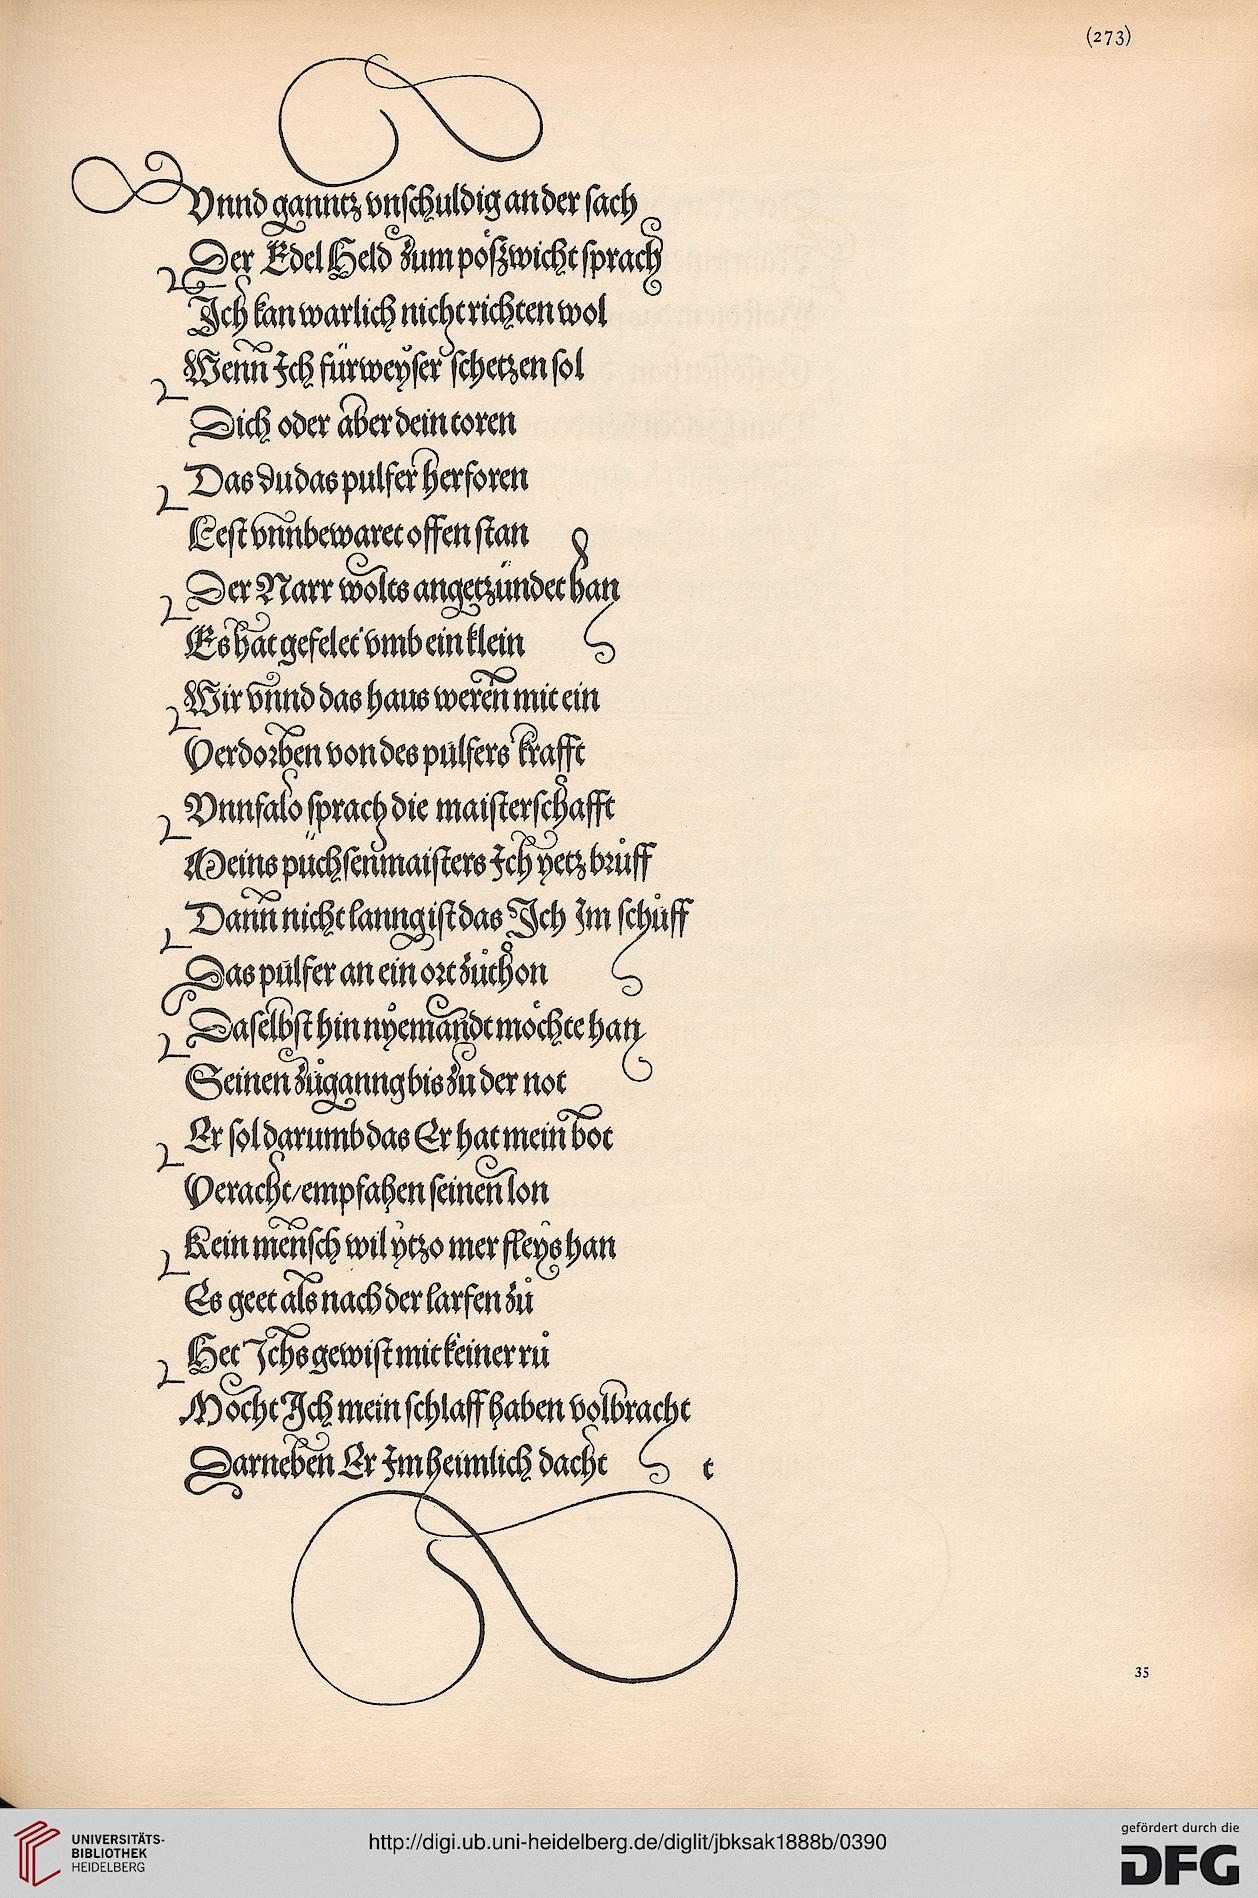 (273)
Vnnd ganntz vnschuldig an der sach
Der Edel Held zum pößwicht sprach
Ich kan warlich nicht richten wol
Wenn Ich für weyser schetzen sol
Dich oder aber dein toren
Das du das pulfer herforen
Lest vnnbewaret offen stan
Der Narr wolts angetzündet han
Es hat gefelet vmb ein klein
Wir vnnd das haus weren mit ein
Verdorben von des pulfers krafft
Vnnfalo sprach die maisterschafft
Meins püchsenmaisters Ich yetz brüff
Dann nicht lanng ist das Ich Im schůff
Das pulfer an ein ort zůthon
Daselbst hin nyemandt möchte han
Seinen zůganng bis zu der not
Er sol darumb das Er hat mein bot
Veracht/empfahen seinen lon
Kein mensch wil ytzo mer fleys han
Es geet als nach der larfen zů
Het Ichs gewist mit keiner rů
Mocht Ich mein schlaff haben volbracht
Darneben Er Im heimlich dacht t
35
UNIVERSITÄTS-
BIBLIOTHEK
HEIDELBERG
http://digi.ub.uni-heidelberg.de/diglit/jbksak1888b/0390
gefördert durch die
DFG